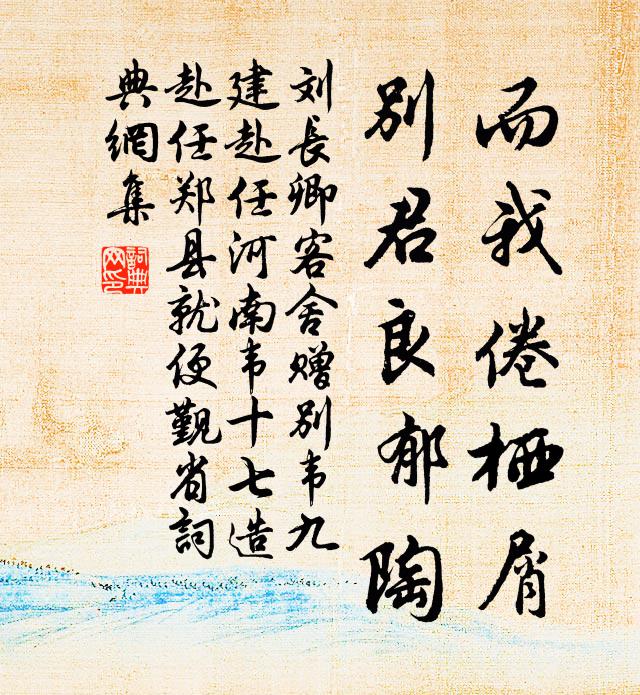 而我倦栖屑
别君良郁陶
刘长卿客舍赠别韦九
建赴任河南韦十七造
赴任郑县就便觐省词
典網集
詞典
网印